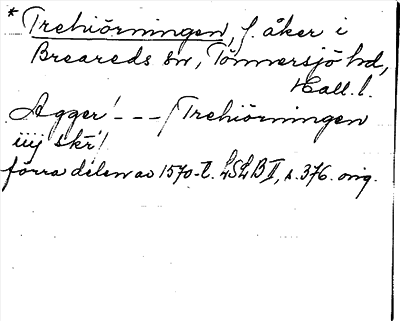 * Trehiörningen, f. åker i
Breareds sn, Tönnersjö hd,
Hall. l.
Agger! --- / Trehiörningen
iiij skr!
förra delen av 1570-t. LSLB II, s. 376. orig.